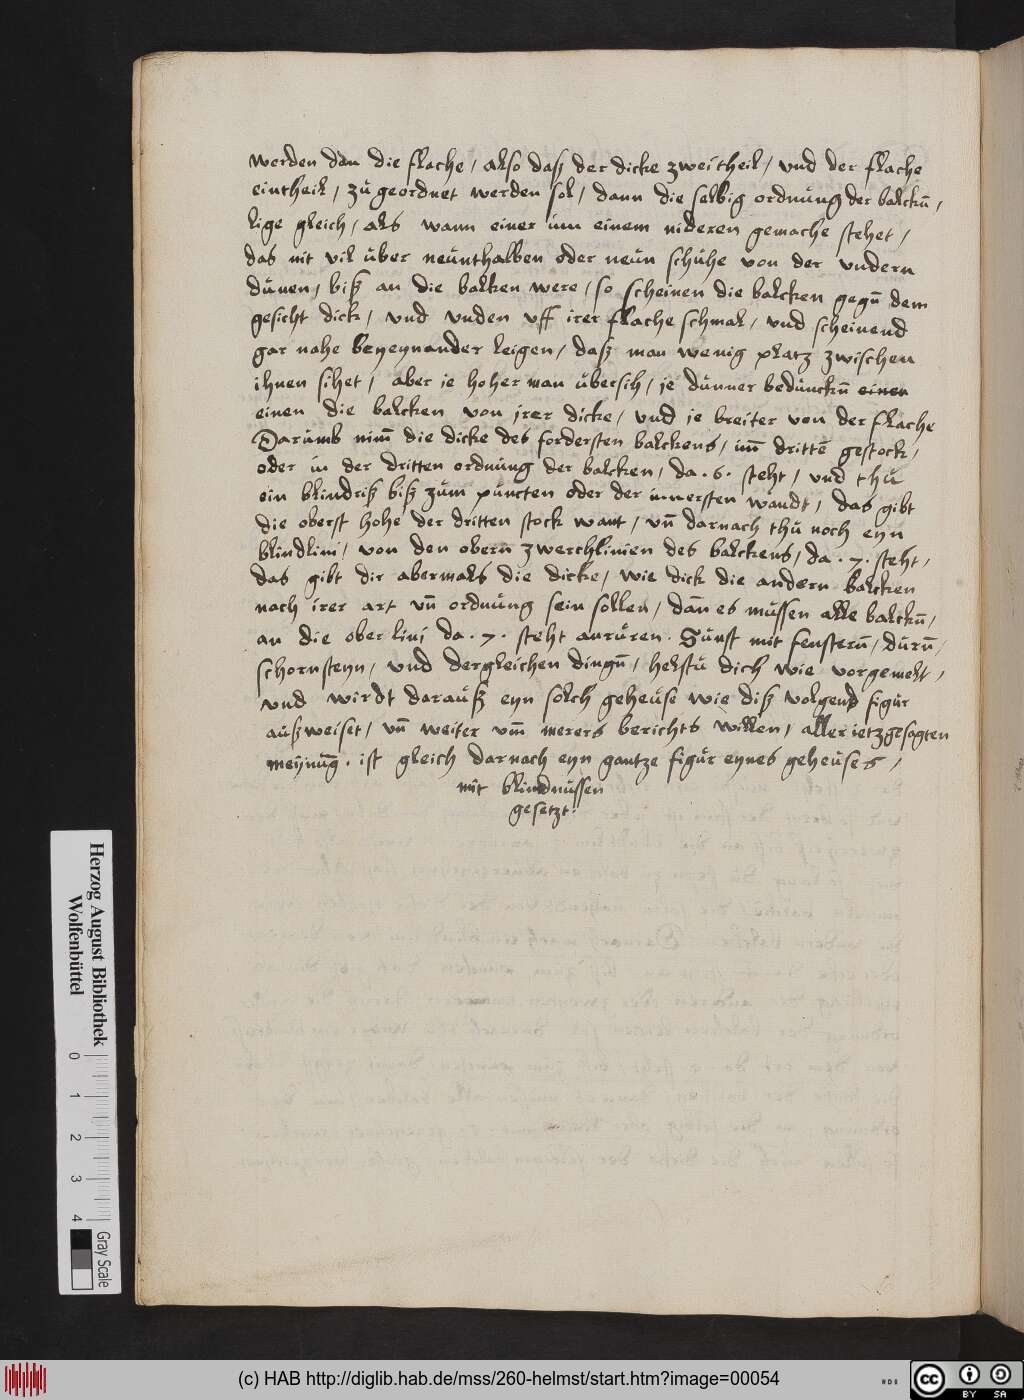 werden dan die flache / also daß der dicke zweitheil / vnd der flache
eintheil / zůgeordnet werden sol / dann die selbig ordnůng der balckñ /
lige gleich / als wann einer inn einem nideren gemache stehet /
das nit vil über neünthalben oder neün schůhe von der vndern
důnen / biß an die balken were / so scheinen die balcken gegñ dem
gesicht dick / vnd vnden vff irer flache schmal / vnd scheinend
gar nahe beyeynander leigen / daß man wenig platz zwischen
ihnen sihet / aber ie hoher man übersich / je dünner bedünckñ einen
einen die balcken von jrer dicke / vnd ie breiter von der flache
Darůmb nim̃ die dicke des fordersten balckens / im̃ drittẽ gestock /
oder in der dritten ordnůng der balcken / da . 6 . steht / vnd thů
ein blindriß biß zům půncten oder der innersten wandt / das gibt
die oberst hohe der dritten stock want / vñ darnach thů noch eyn
blindlini / von den obern zwerchlinien des balckens / da . 7 . steht /
das gibt dir abermals die dicke / wie dick die andern balcken
nach irer art vñ ordnůng sein sollen / dañ es müssen alle balckñ /
an die ober lini da . 7 . steht anrüren . Sůnst mit fensterñ / důrñ /
schornsteyn / vnd dergleichen dingñ / helstu dich wie vorgemelt /
vnd wirdt daraůß eyn solch geheüse wie diß volgend figůr
aůßweiset / vñ weiter vm̃ merers berichts willen / aller ietzgesagten
meijnũg . ist gleich darnach eyn gantze figůr eynes geheüses /
mit blindnüssen
gesetzt :
Herzog August Bibliothek
Wolfenbüttel
0 1 2 3 4
Gray Scale
(c) HAB http://diglib.hab.de/mss/260-helmst/start.htm?image=00054
cc BY SA